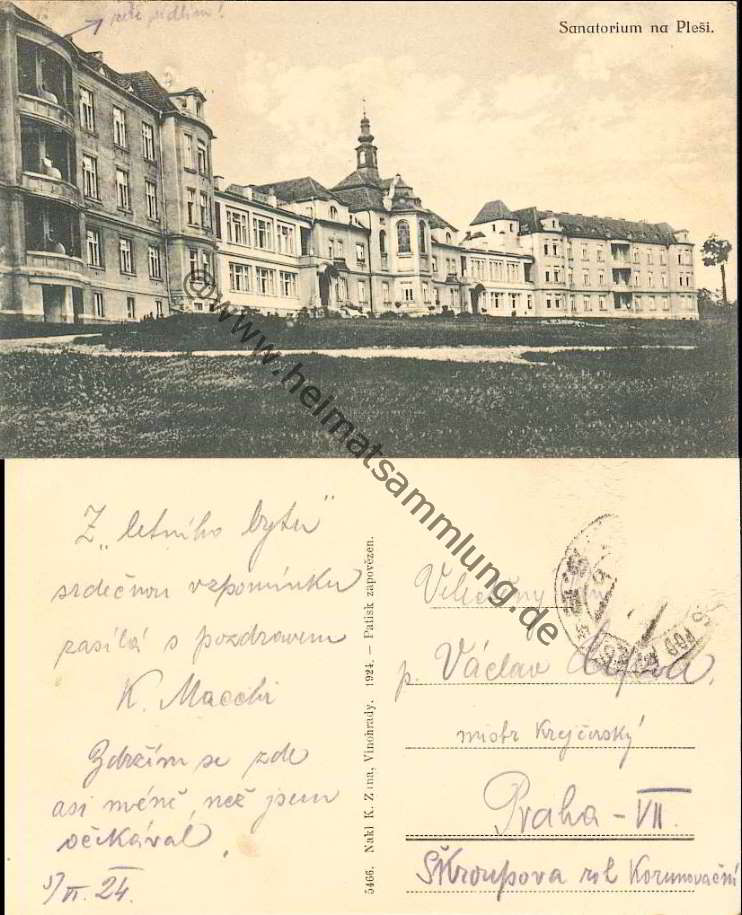 zde sídlím!
Sanatorium na Pleši.
©www.heimatsammlung.de
Z „letního bytu"
srdečnou vzpomínku
zasílá s pozdravem
K. Macchi
Zdržím se zde
asi méně, než jsem
očekával.
5/VI. 24.
5466. Nakl K. Zuna, Vinohrady. 1924. — Patisk zapovězen.
Velectěný pán
p. Václav
mistr krejčovský
Praha – VII.
Škroupova roh Korunovační